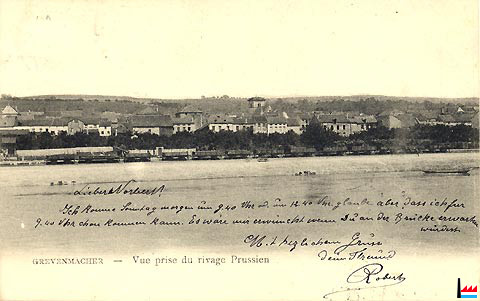 Ich komme Sonntag morgen um 9.40 Uhr u. um 12.40 Uhr glaube aber dass ich für
9.40 Uhr schon kommen kann. Es wäre mir erwünscht wenn Du an der Brücke erwarten
würdest.
Mit herzlichem Gruss
dein Freund
Robert
GREVENMACHER. — Vue prise du rivage Prussien